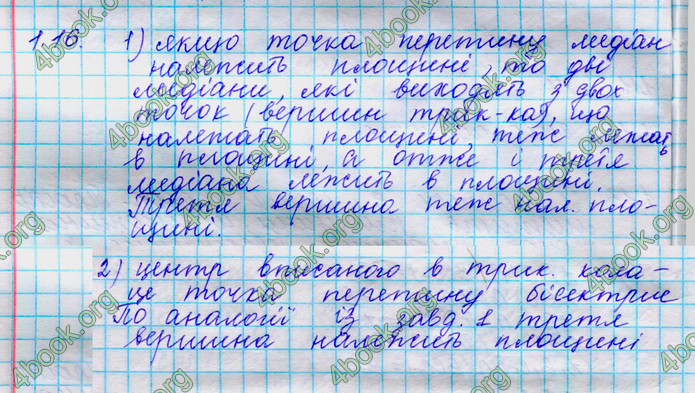 1.16. 1) якщо точка перетину медіан
належить площині, то дві
медіани, які виходять з двох
точок (вершин трик-ка), що
належать площині, теж лежать
в площині, а отже і третя
медіана лежить в площині.
Третя вершина теж нал. пло-
щині.
2) центр вписаного в трик. кола -
це точка перетину бісектрис
По аналогії із завд. 1 третя
вершина належить площині